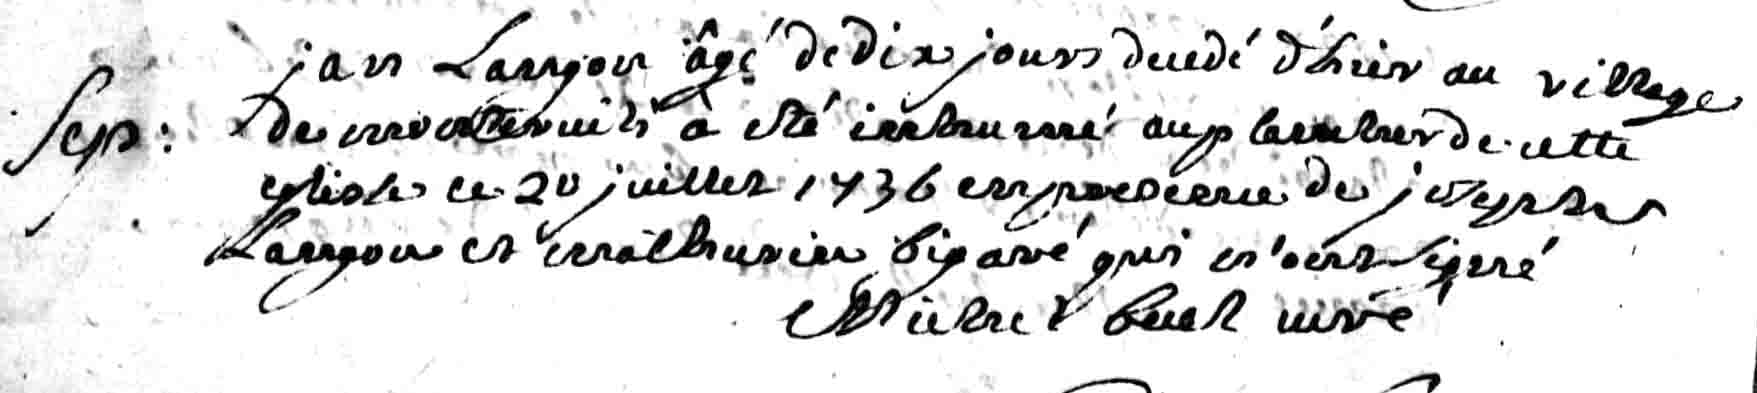 jan Langou âgé de dix jours decedé d'hier au village
Sep: de a été inhumé au placenhier de cette
eglise ce 20 juillet 1736 en presence de joseph
Langou et mathurin bigaré qui n'ont signé
Michel buel curé